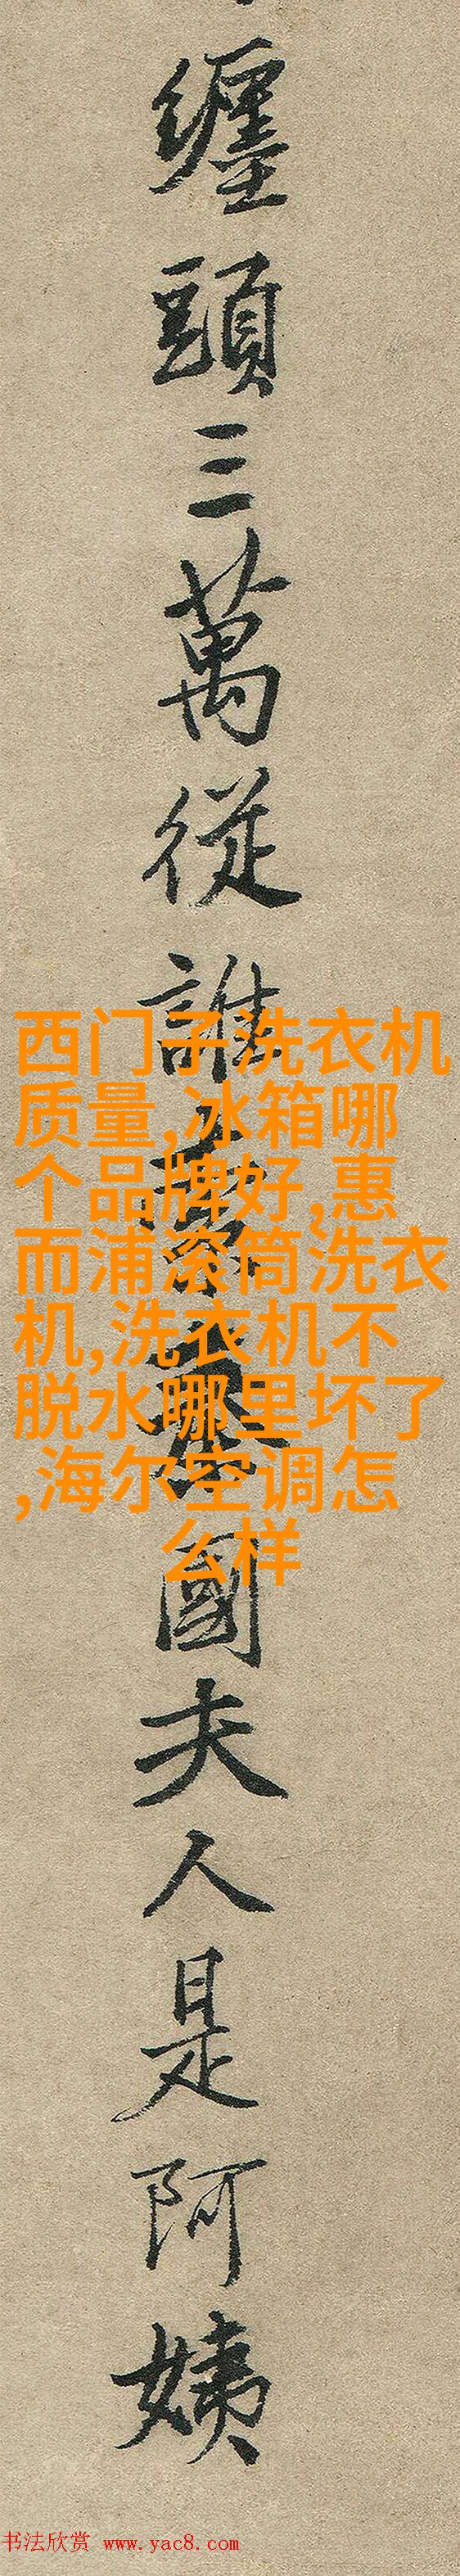 纏頭三萬從誰國夫人是阿姨
西门子洗衣机
质量,冰箱哪
个品牌好,惠
而浦滚筒洗衣
机,洗衣机不
脱水哪里坏了
,海尔空调怎
么样
书法欣赏 www.yac8.com